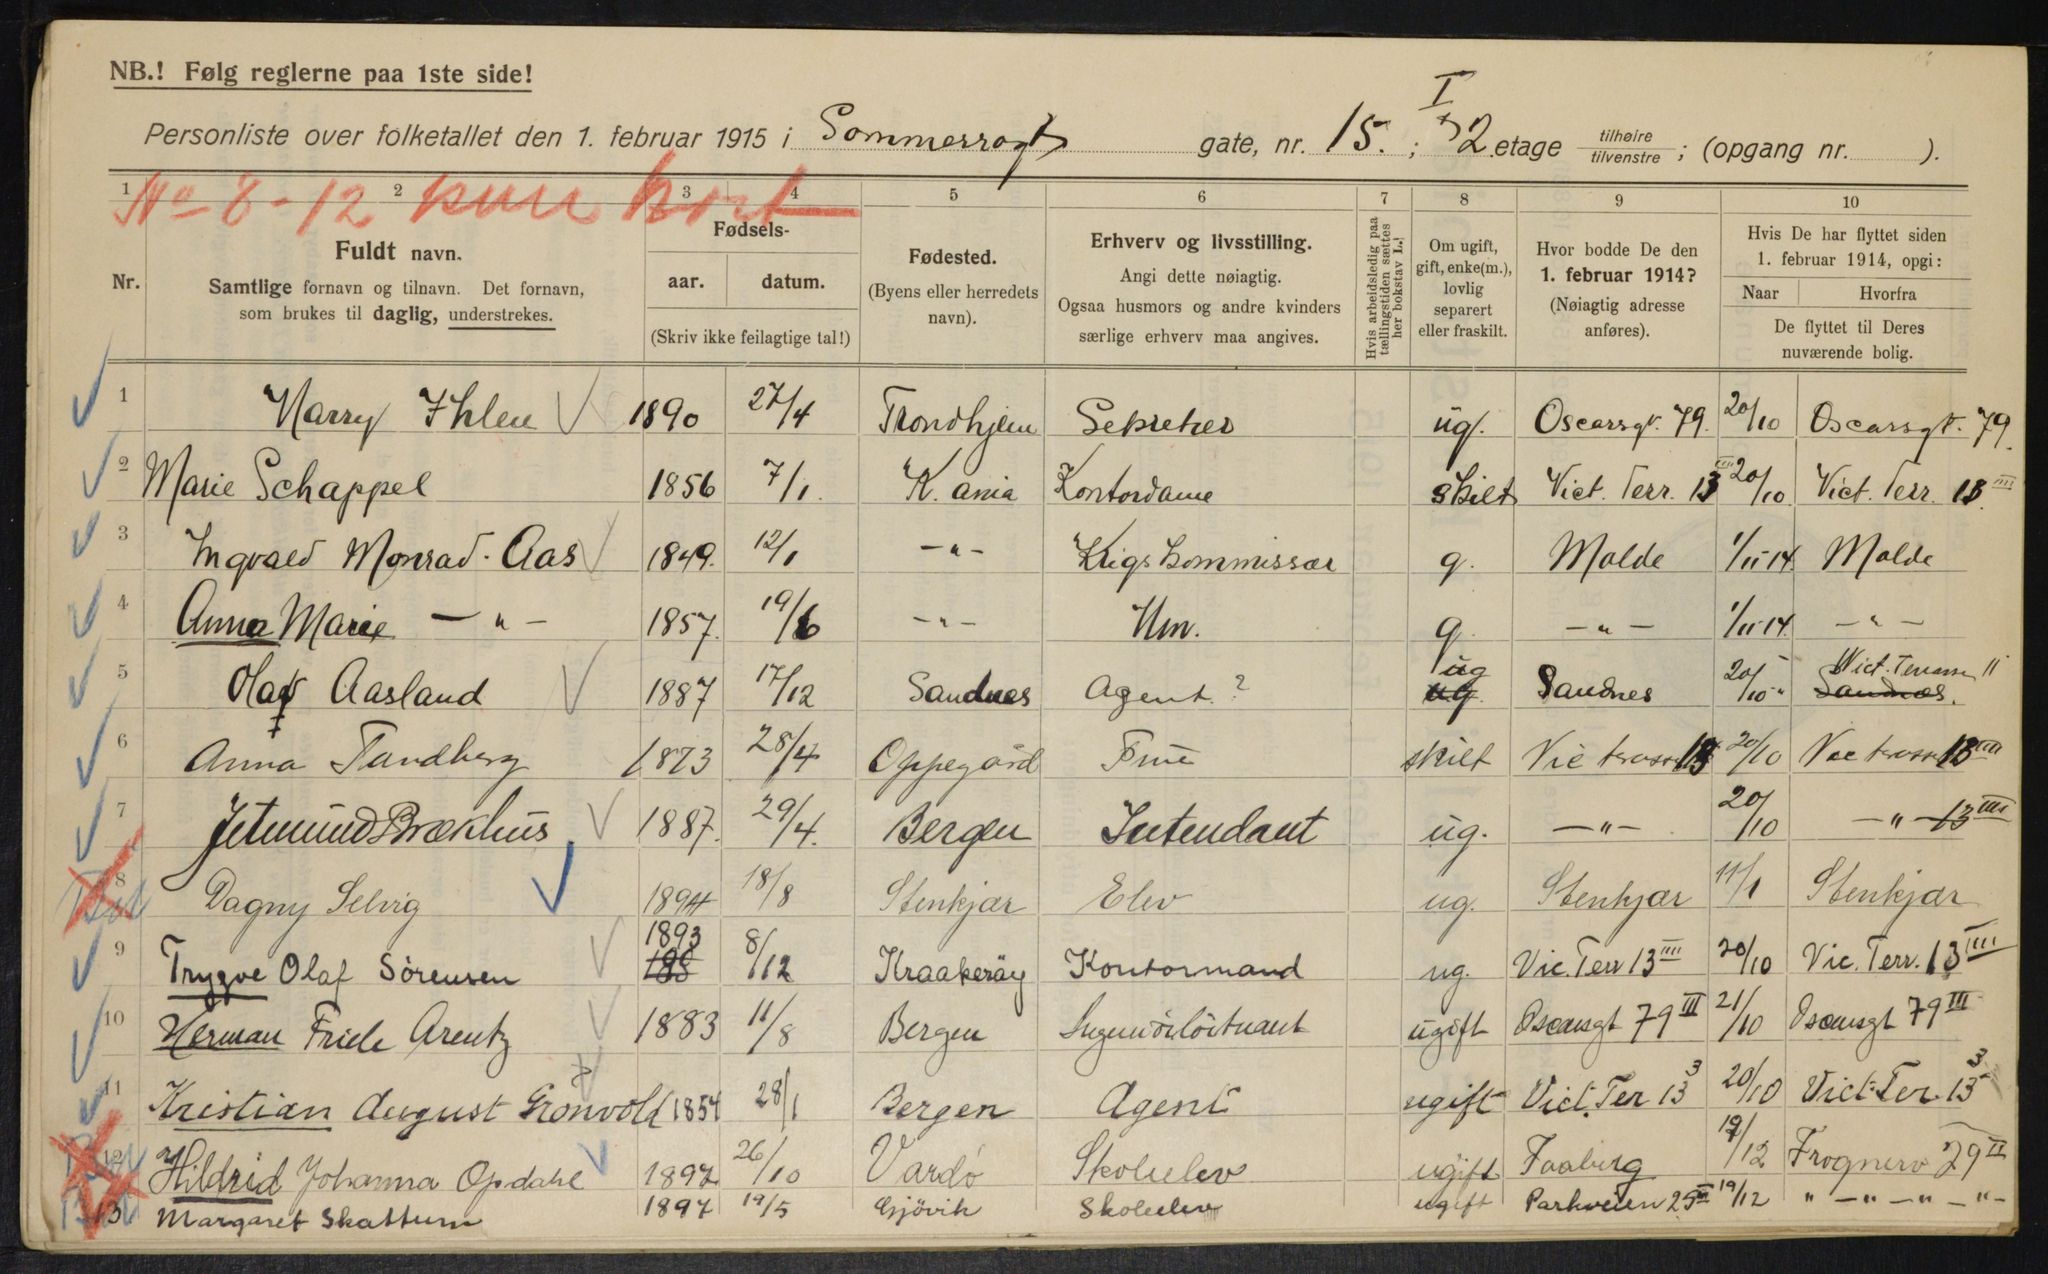 NB.! Følg reglerne paa 1ste side!
I
Personliste over folketallet den 1. februar 1915 i Sommerrogt gate, nr. 15. ; 2 etage tilhøire / tilvenstre ; (opgang nr. ).
No 8-12 kun kort
1 2 3 4 5 6 7 8 9 10
Nr.
Fuldt navn.
Samtlige fornavn og tilnavn. Det fornavn,
som brukes til daglig, understrekes.
Fødsels-
aar. datum.
(Skriv ikke feilagtige tal!)
Fødested.
(Byens eller herredets
navn).
Erhverv og livsstilling.
Angi dette nøiagtig.
Ogsaa husmors og andre kvinders
særlige erhverv maa angives.
Hvis arbeidsledig paa
tællingstiden sættes
her bokstav L.!
Om ugift,
gift, enke(m.),
lovlig
separert
eller fraskilt.
Hvor bodde De den
1. februar 1914?
(Nøiagtig adresse
anføres).
Hvis De har flyttet siden
1. februar 1914, opgi:
Naar Hvorfra
De flyttet til Deres
nuværende bolig.
1 Harry Ihlen 1890 27/4 Trondhjem Sekretær ug. Oscarsgt. 79. 20/10 Oscarsgt. 79.
2 Marie Schappel 1856 7/1. K. ania Kontordame skilt Vict. Terr. 13 III 20/10. Vict. Terr. 13. III
3 Ingvald Monrad-Aas 1849. 12/1 -"- Krigskommissær g. Molde 1/11-14. Molde
4 Anna Marie -"- 1857. 19/6 -"- Hm. g. -"- 1/11-14. -"-
5 Olaf Aasland 1887 17/12 Sandnes Agent ? ug ug. Sandnes 20/10 Vict. Terrasse 11 Sandnes.
6 Anna Tandberg 1873 28/4 Oppegård Frue skilt Vic terasse 13 20/10 Vic terasse 13 IIII
7 Jetmund Brækhus 1887. 29/4. Bergen Intendant ug. -"- 20/10 -"- 13 IIII
8 Dagny Selvig 1894 18/8 Stenkjær Elev ug. Stenkjær 11/1 Stenkjær
9 Trygve Olaf Sörensen 1893 188 8/12 Kraakeröy Kontormand ug. Vic. Terr 13 IIII 20/10 Vic. Terr. 13 IIII
10 Herman Friele Arentz 1883 11/8 Bergen Ingeniörlöitnant ugift Oscarsgt 79 III 21/10 Oscarsgt 79 III
11 Kristian August Grönvold 1854 28/1 Bergen Agent ugift Vict. Ter 13 3 20/10 Vict. Ter. 13 3
12 Hildrid Johanna Opdahl 1897 26/10 Vardö Skoleelev ugift Faaberg 19/12 Frognerv 29 II
13 Margaret Skattum 1897 19/5 Gjövik Skoleelev ugift Parkveien 25 III 19/12 " -"-"-"-